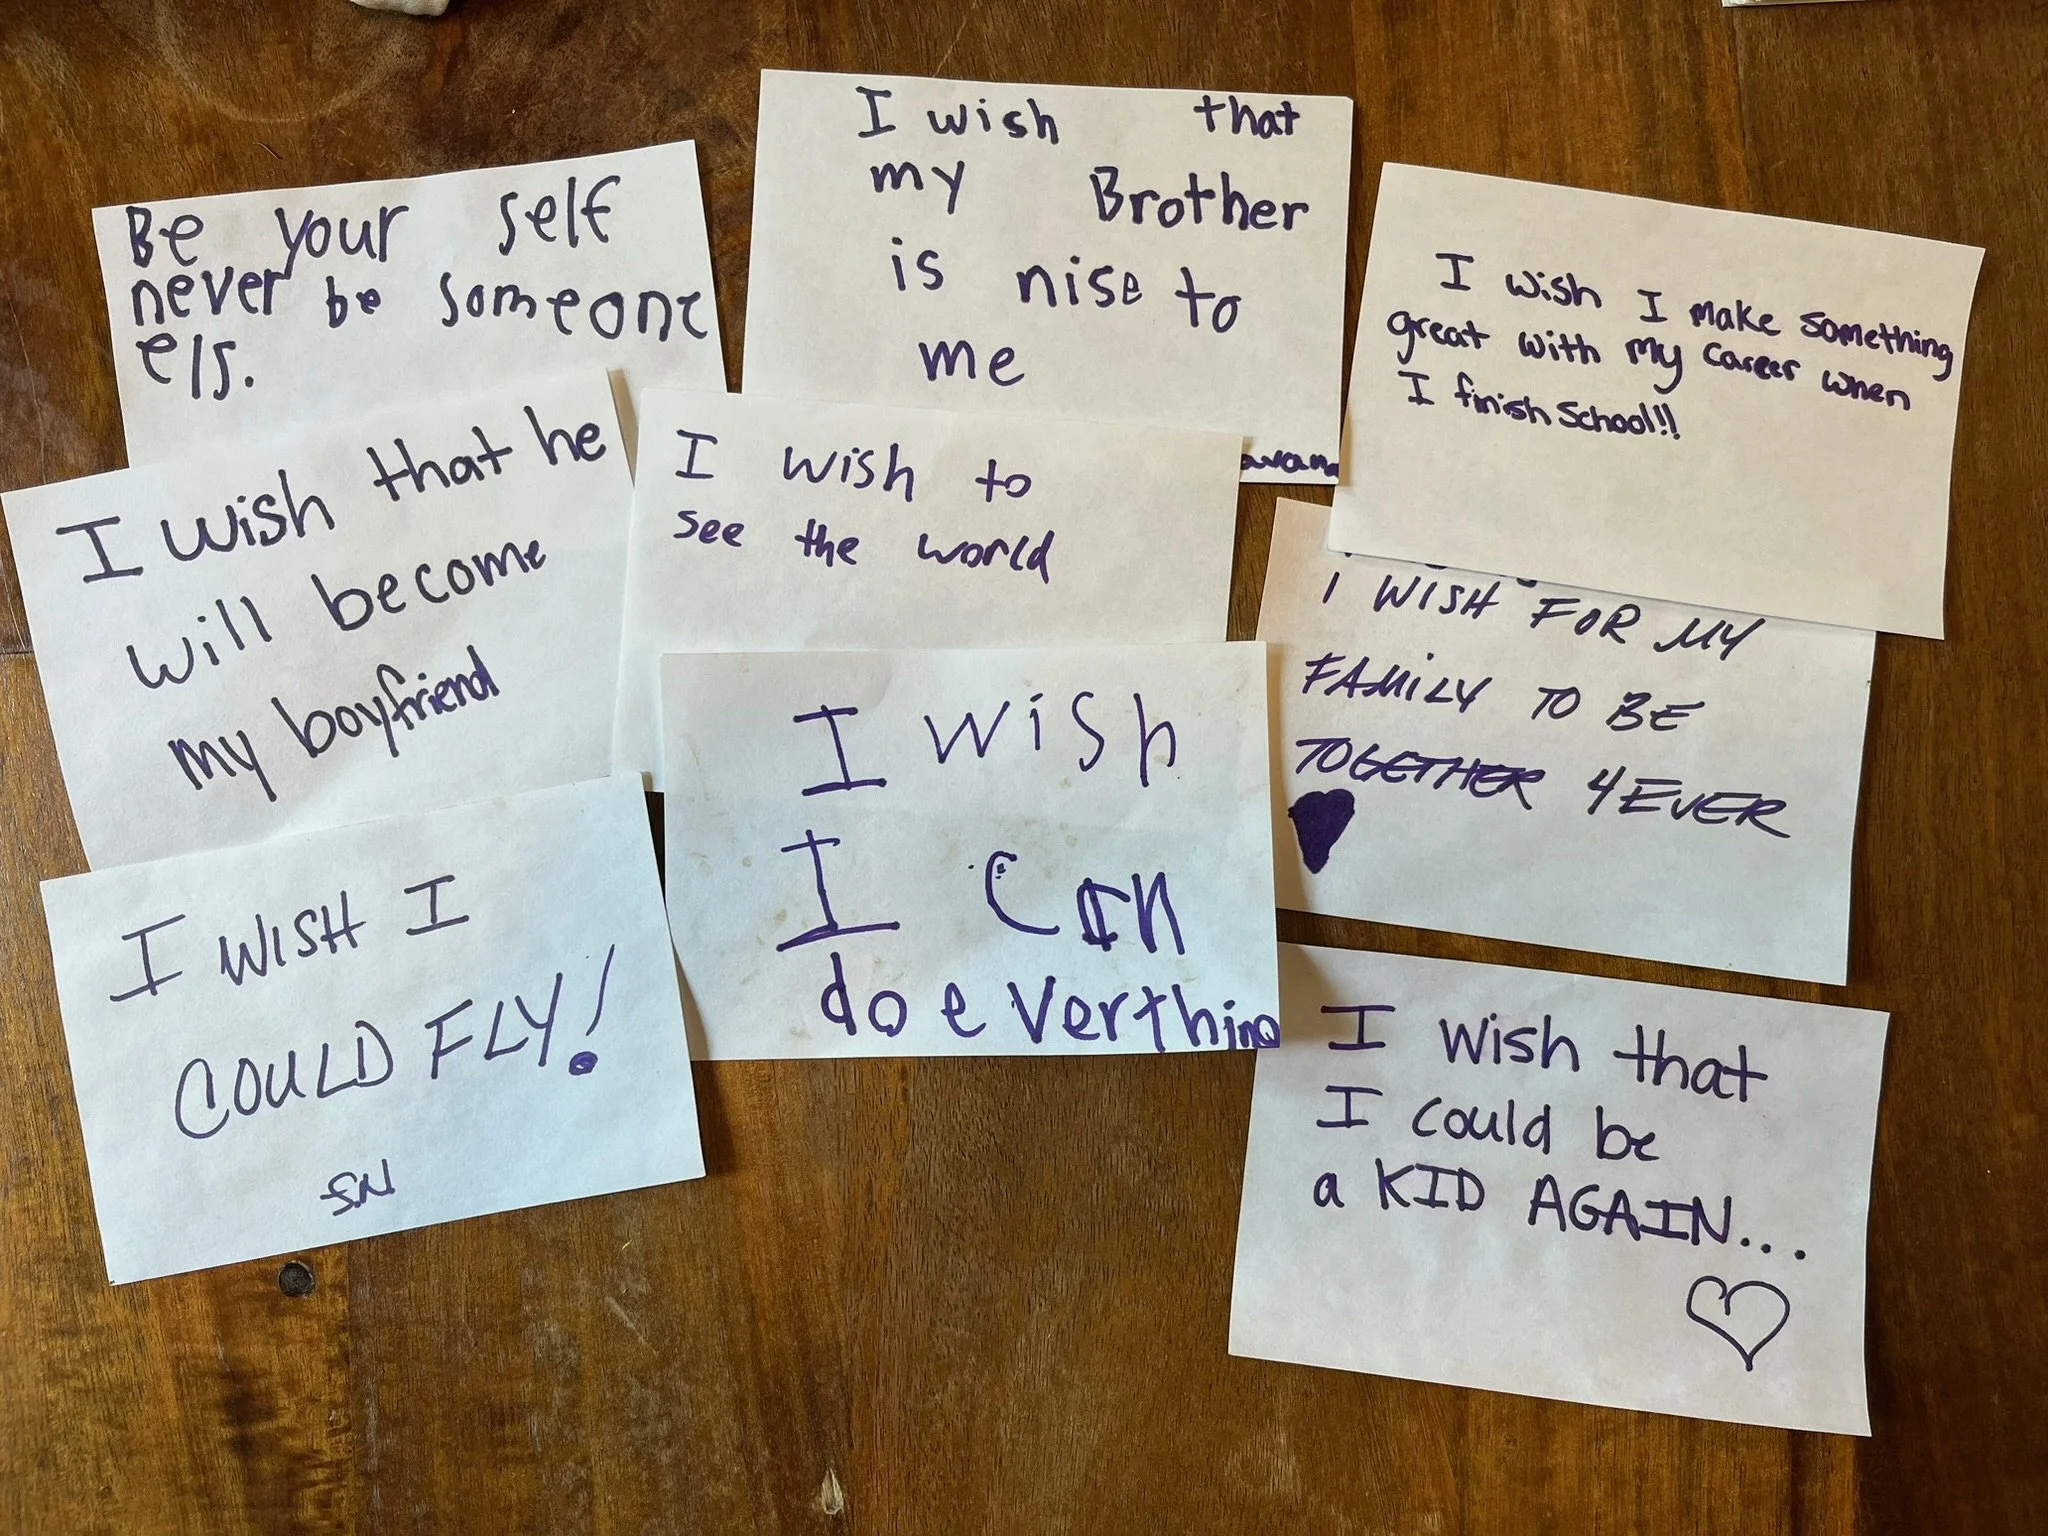 Be your self
never be someone
els.
I wish that
my Brother
is nise to
me
I wish I make something
great with my career when
I finish school!!
I wish that he
will become
my boyfriend
I wish to
see the world
I WISH FOR MY
FAMILY TO BE
TOGETHER 4EVER
I WISH I
COULD FLY!
S.N
I wish
I can
do everything
I wish that
I could be
a KID AGAIN...